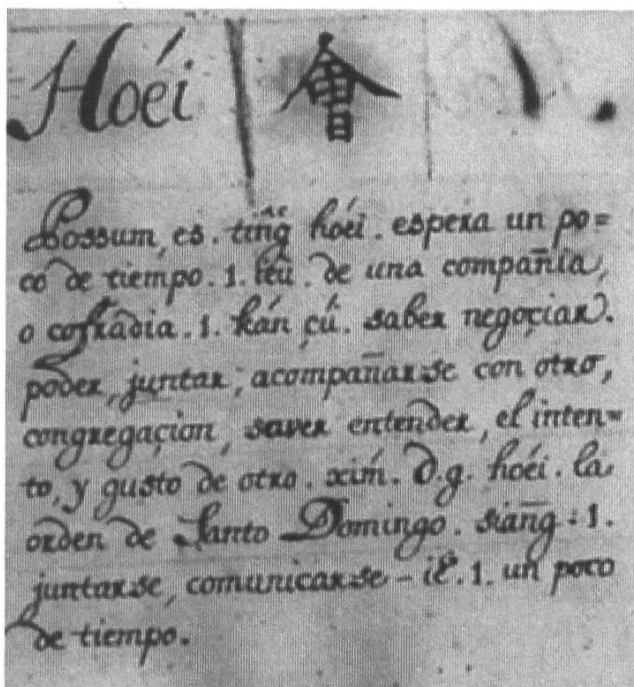 Hoéi 會 1.
Possum, es. tin̂g hoéi. espera un po=
co de tiempo. 1. teû. de una compañia,
o cofradia. 1. kán çû. saber negoçiar.
poder, juntar; acompañarse con otro,
congregaçion, saver entender, el inten=
to, y gusto de otro. xim̂. D.g. hoéi. la
orden de Santo Domingo. siañg. 1.
juntarse, comunicarse – iĕ. 1. un poco
de tiempo.